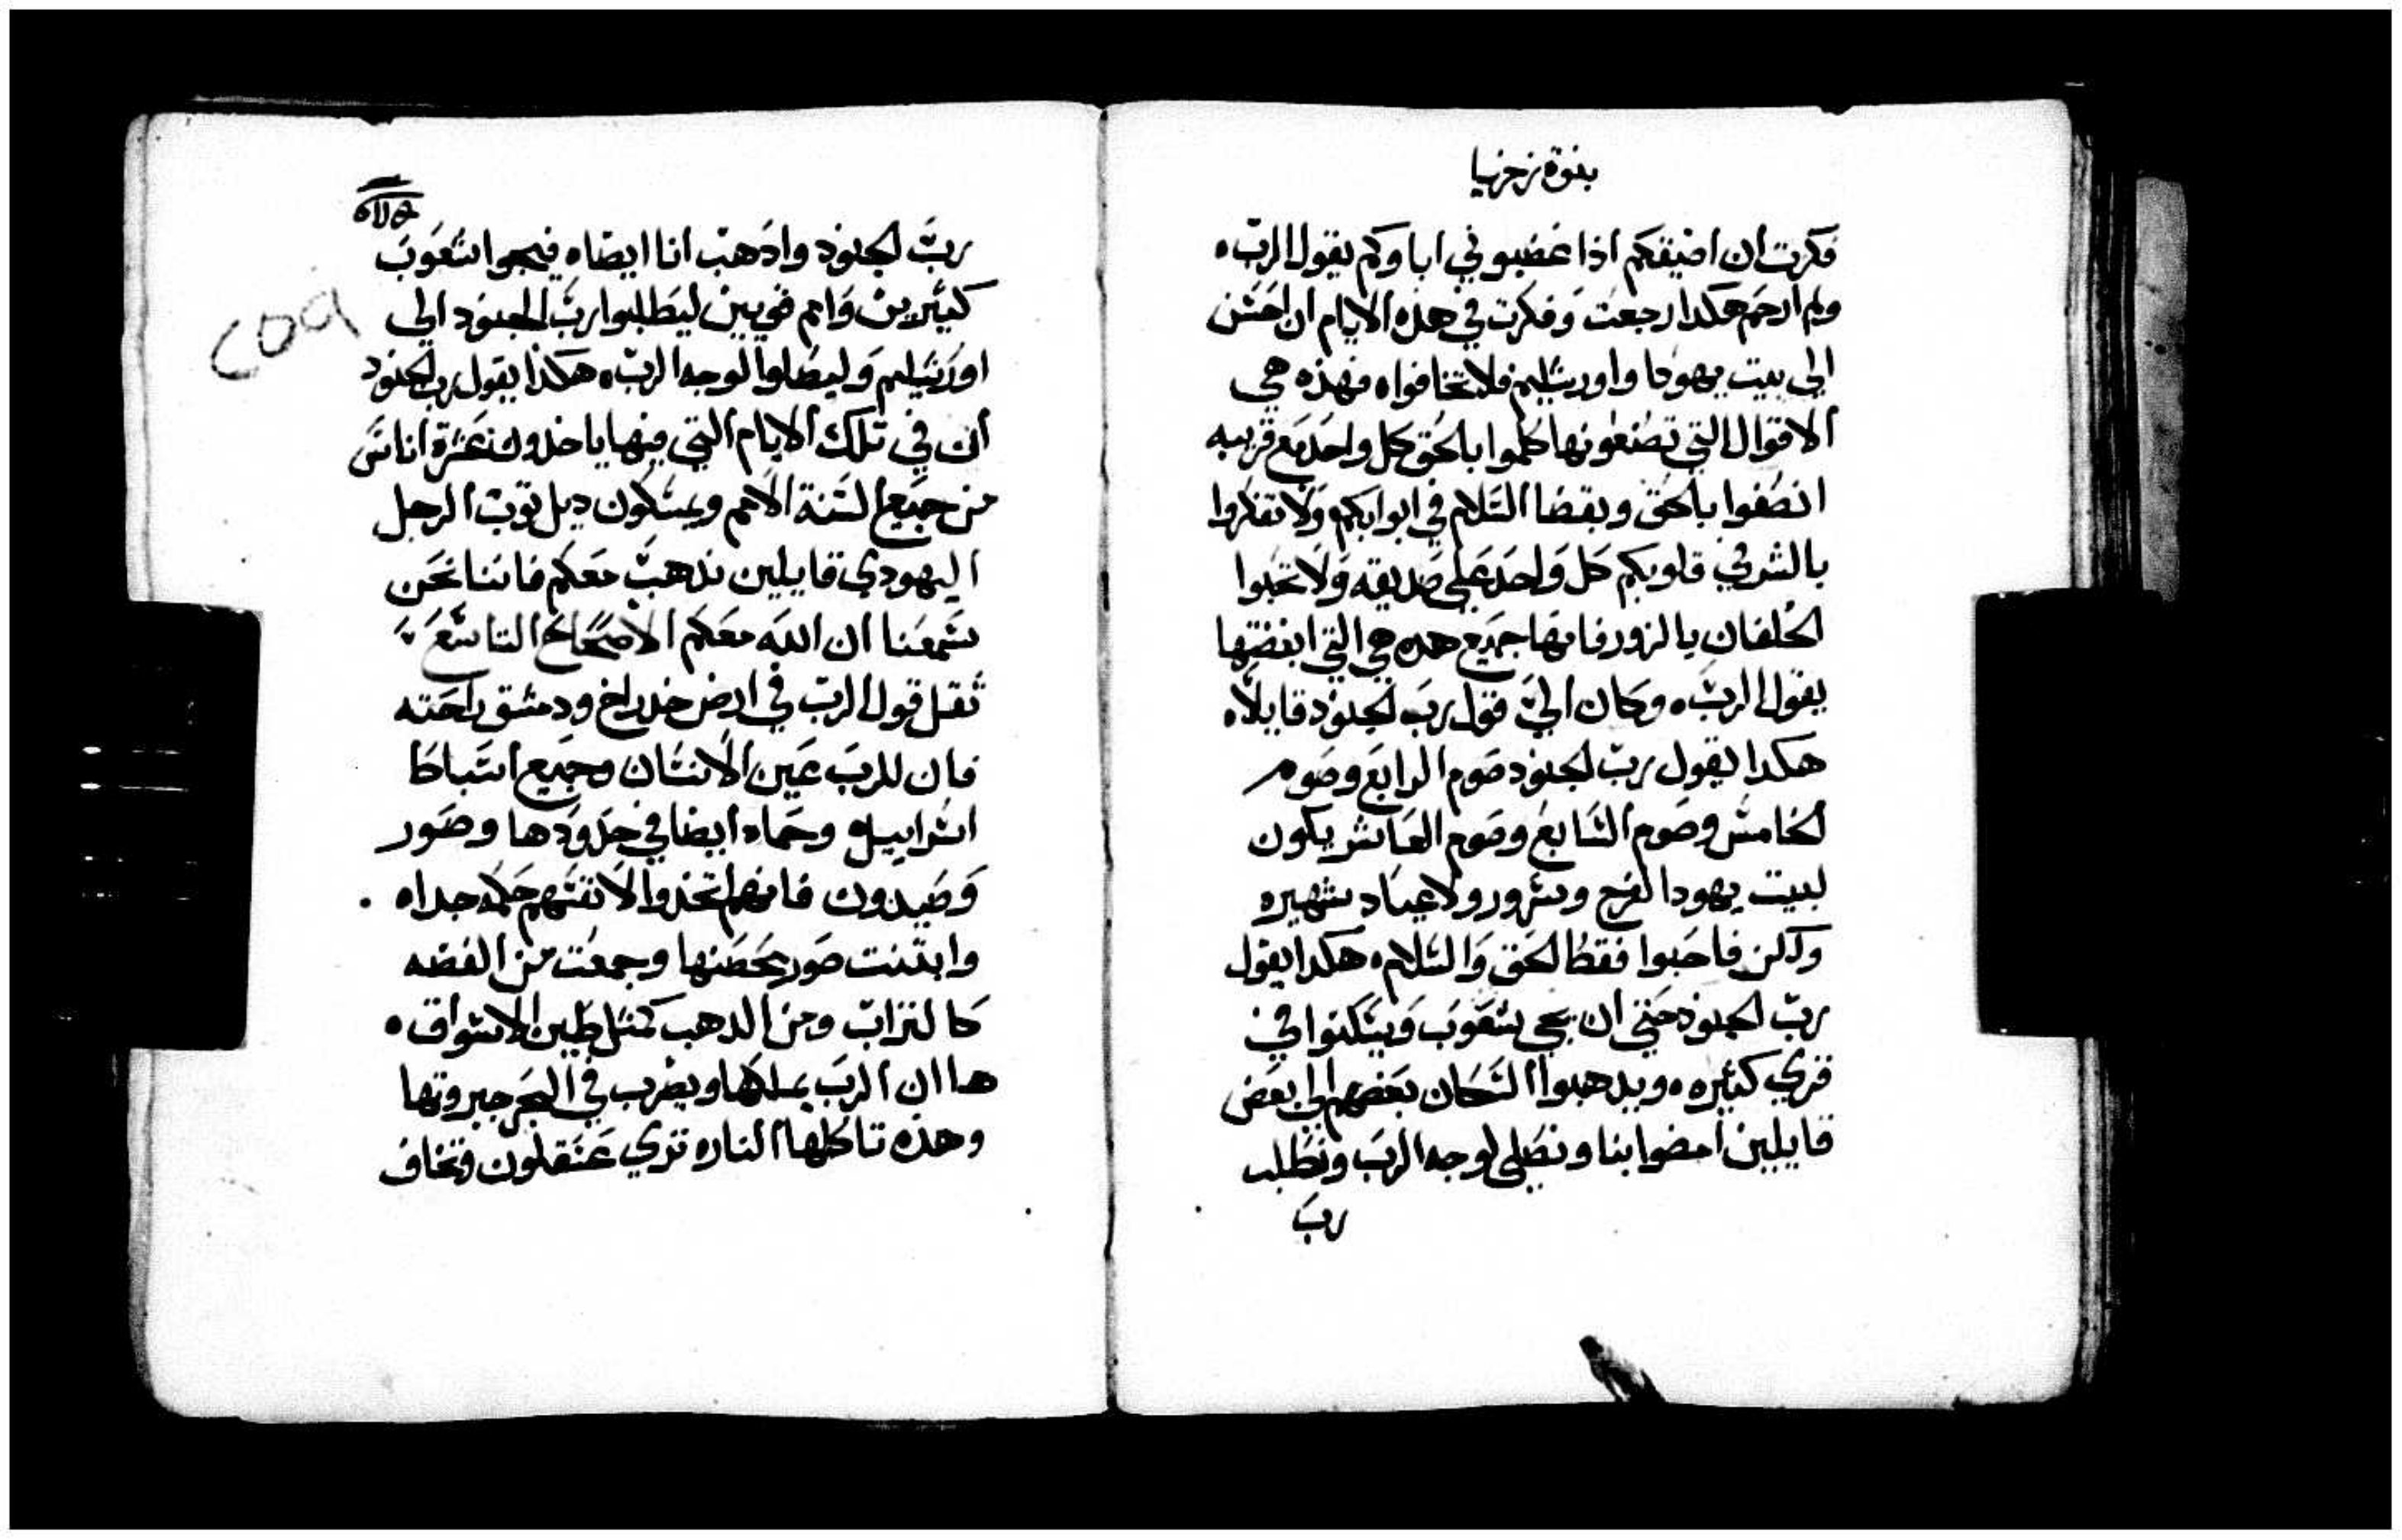 بنوة زخريا
فكرت ان اضيقكم اذا غضبوني اباوكم يقول الرب ه
ولم ارحم هكدا رجعت وفكرت في هده الايام ان احسن
الي بيت يهودا واورشليم فلا تخافوا ه فهذه هي
الاقوال التي تصنعونها كلموا بالحق كل واحد مع قريبه
انصفوا بالحق وبقضا السلام في ابوابكم ولا تفكروا
بالشر في قلوبكم كل واحد علي صديقه ولا تحبوا
الحلفان بالزور فانها جميع هده هي التي ابغضتها
يقول الرب ه وكان الي قول رب الجنود قايلا ه
هكدا يقول رب الجنود صوم الرابع وصوم
الخامس وصوم السابع وصوم العاشر يكون
لبيت يهودا لفرح وسرور ولاعياد شهيره
ولكن فاحبوا فقط الحق والسلام ه هكدا يقول
رب الجنود حتي ان يجي شعوب ويسكنوا في
قري كثيره ه ويدهبوا السكان بعضهم الي بعض
قايلين امضوا بنا ونصلي لوجه الرب ونطلب
رب
رب الجنود وادهب انا ايضا ه فيجوا شعوب
كثيرين وامم قويين ليطلبوا رب الجنود الي
اورشليم وليصلوا لوجه الرب ه هكذا يقول رب الجنود
ان في تلك الايام التي فيها ياخدون عشرة اناس
من جميع السنة الامم ويمسكون ديل توب الرجل
اليهودي قايلين ندهب معكم فاننا نحن
سمعنا ان الله معكم الاصحاح التاسع
ثقل قول الرب في ارض خدراخ ودمشق راحته
فان للرب عين الانسان وجميع اسباط
اسراييل ه وحماه ايضا في حدودها وصور
وصيدون فانهم اتخذوا لانفسهم حكمه جدا ه
وابتنت صور بحصنها وجمعت من الفضه
كالتراب ومن الدهب كمثل طين الاسواق ه
ها ان الرب يملكها ويضرب في البحر جبروتها
وهذه تاكلها النار ه تري عسقلون وتخاف
٢٥٩